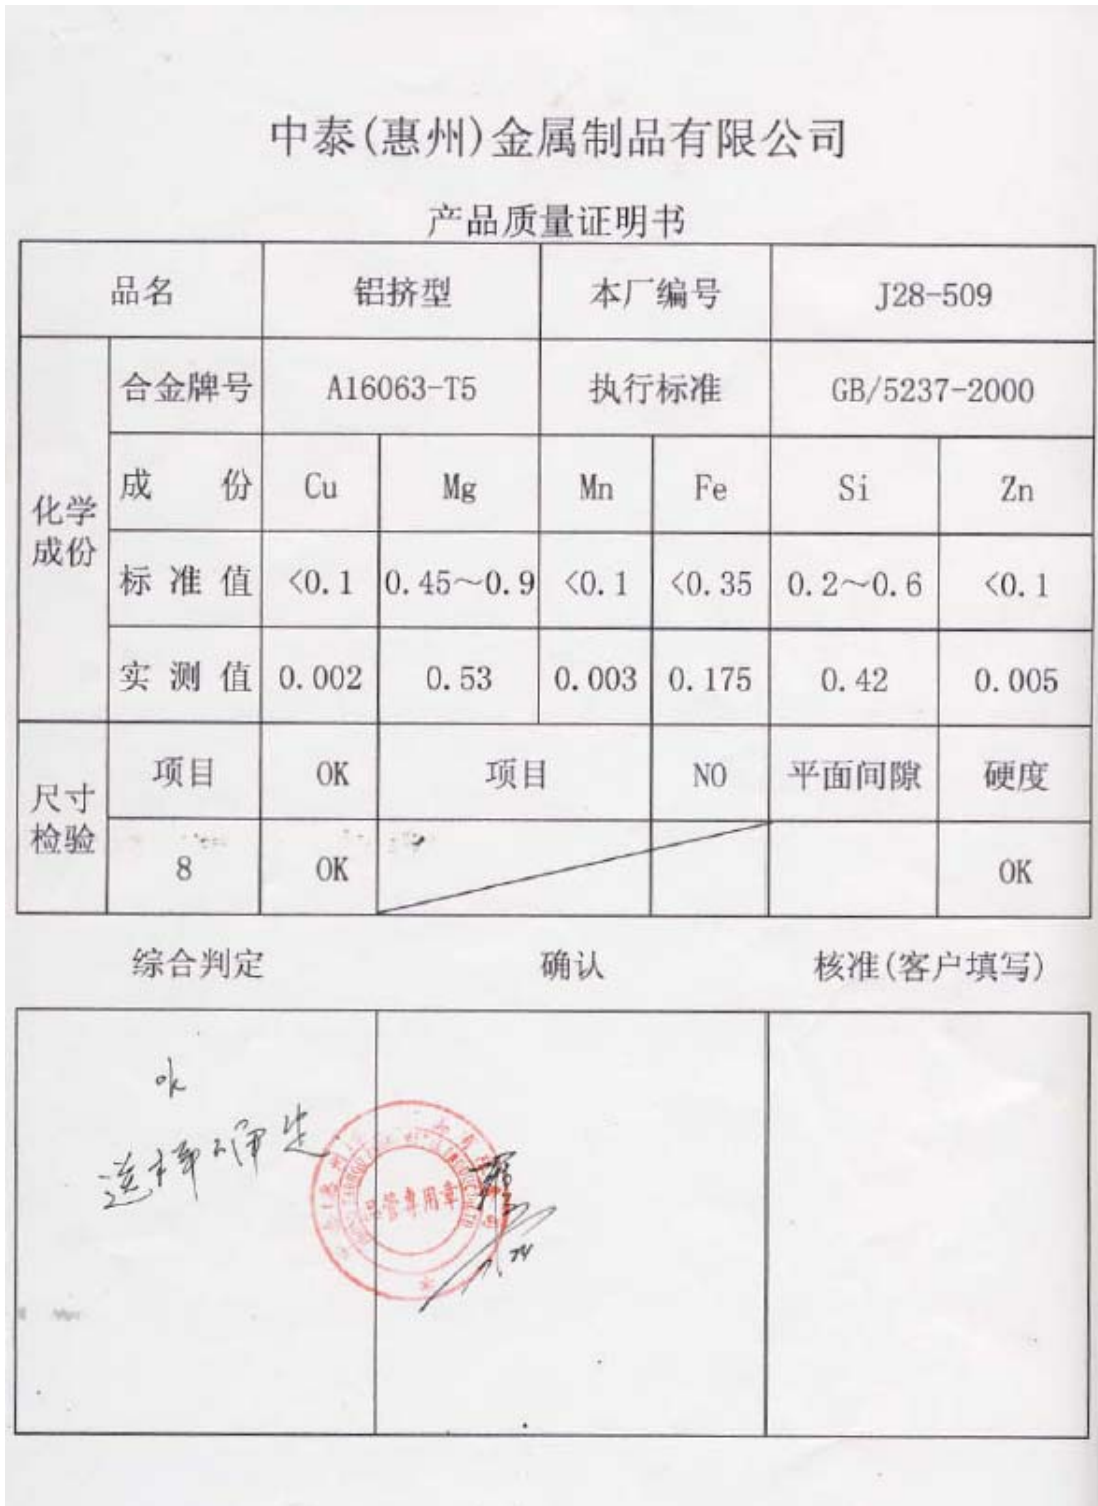 中泰(惠州)金属制品有限公司
产品质量证明书
品名 铝挤型 本厂编号 J28-509
化学成份 合金牌号 A16063-T5 执行标准 GB/5237-2000
成 份 Cu Mg Mn Fe Si Zn
标 准 值 <0.1 0.45~0.9 <0.1 <0.35 0.2~0.6 <0.1
实 测 值 0.002 0.53 0.003 0.175 0.42 0.005
尺寸检验 项目 OK 项目 NO 平面间隙 硬度
8 OK OK
综合判定 确认 核准(客户填写)
ok
送样
品管专用章